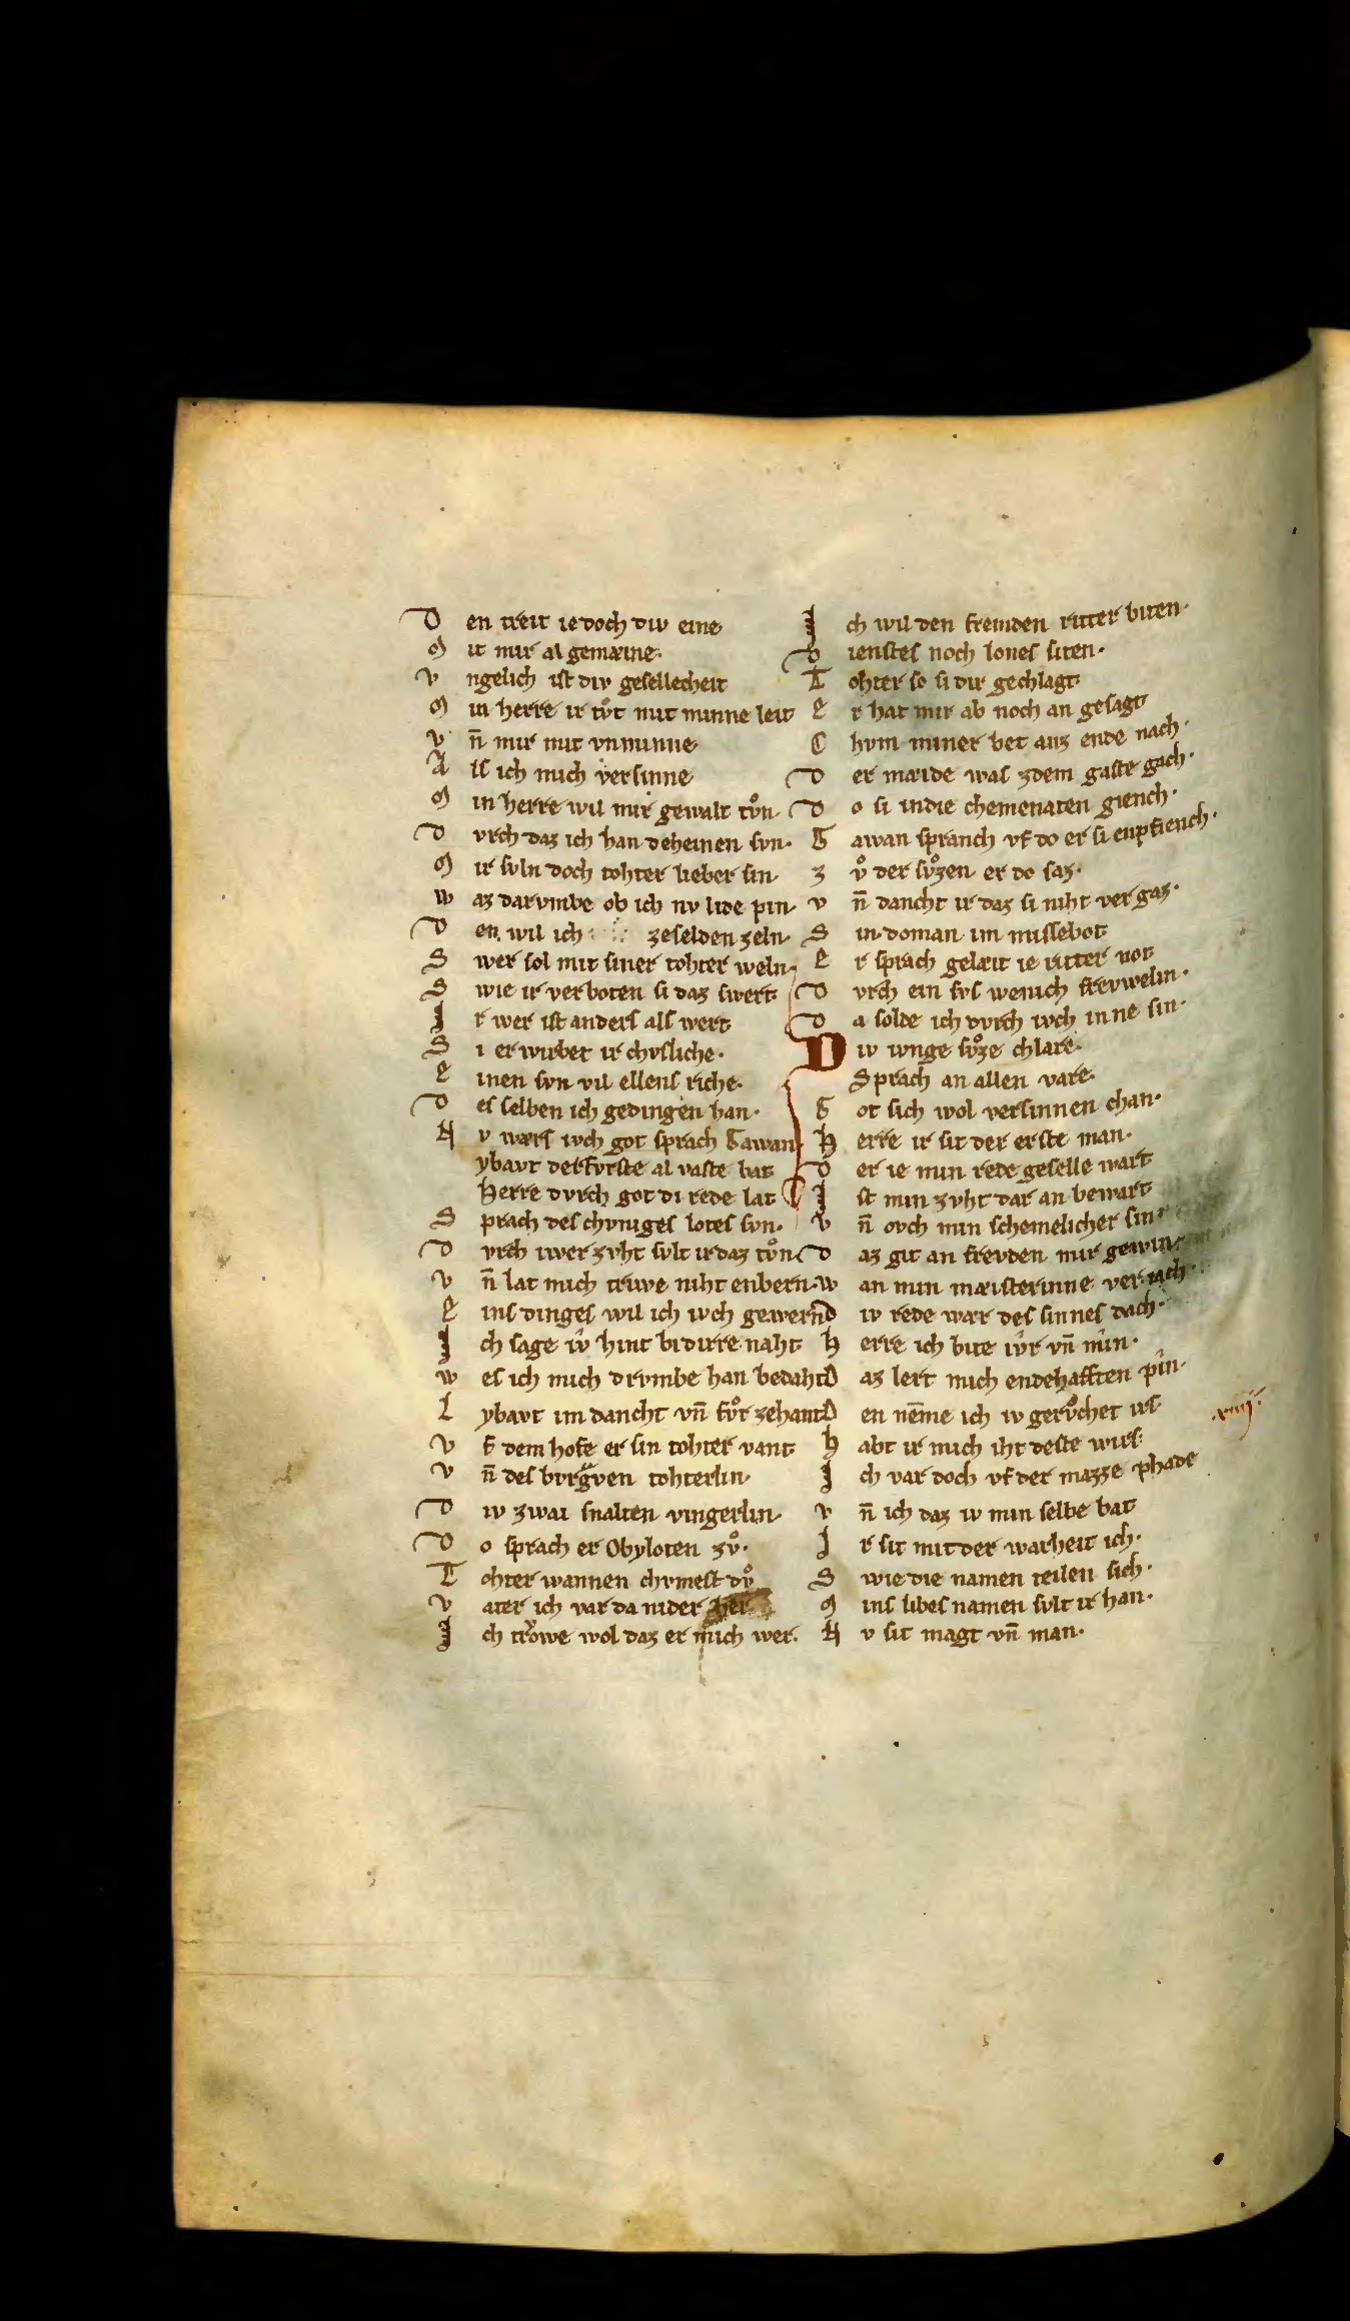 D en treit ie doch div eine
M it mir al gemæine.
V ngelich ist div gesellecheit
M in herre ir tv̊t mit minne leit
V n̄ mir mit vnminne
A ls ich mich versinne
M in herre wil mir gewalt tv̊n.
D vrch daz ich han deheinen svn.
M ir svln doch tohter lieber sin
W az darvmbe ob ich nv lide pin
D en wil ich zeselden zeln.
S wer sol mit siner tohter weln.
S wie ir verboten si daz swert
I r wer ist anders als wert
S i erwirbet ir chvsliche.
E inen svn vil ellens riche.
D es selben ich gedingen han.
N v wærs ivch got sprach Gawan
ybavt der fvrste al vaste bat
Herre dvrch got di rede lat
S prach des chvniges lotes svn.
D vrch iwer zvht svlt ir daz tv̊n
V n̄ lat mich triwe niht enbern.
E ins dinges wil ich ivch gewern
I ch sage iv̊ hint bi dirre naht
W es ich mich drvmbe han bedaht
L ybavt im dancht vn̄ fv̊r zehant
V f dem hofe er sin tohter vant
V n̄ des bvrgᵃven tohterlin.
D iv zwai snalten vingerlin.
D o sprach er Obyloten zv̊.
T ohter wannen chvmest dv̊
V ater ich var da nider her
I ch trowe wol daz er mich wer.
I ch wil den fremden ritter biten.
D ienstes noch lones siten.
T ohter so si dir gechlagt
E r hat mir ab noch an gesagt
C hvm miner bet anz ende nach.
D er mæide was zdem gaste gach.
D o si indie chemenaten giench.
G awan spranch vf do er si enpfiench.
Z v̊ der sv̊zen er do saz.
V n̄ dancht ir daz si niht vergaz.
S in doman im missebot
E r sprach gelæit ie ritter not
D vrch ein svs wenich frevwelin.
D a solde ich dvrch ivch inne sin.
D iv ivnge sv̊ze chlare.
Sprach an allen vare.
G ot sich wol versinnen chan.
H erre ir sit der erste man.
D er ie min rede geselle wart
I st min zvht dar an bewart
V n̄ ovch min schemelicher sin
D az git an frevden mir gewin
W an min mæisterinne veriach.
D iv rede wær des sinnes dach.
H erre ich bite iwr vn̄ min.
D az lert mich endehafften pin.
D en nēme ich iv gerv̊chet irs
H abt ir mich iht deste wirs.
I ch var doch vf der mazze phade
V n̄ ich daz iv min selbe bat
I r sit mit der warheit ich.
S wie die namen teilen sich.
M ins libes namen svlt ir han.
N v sit magt vn̄ man.